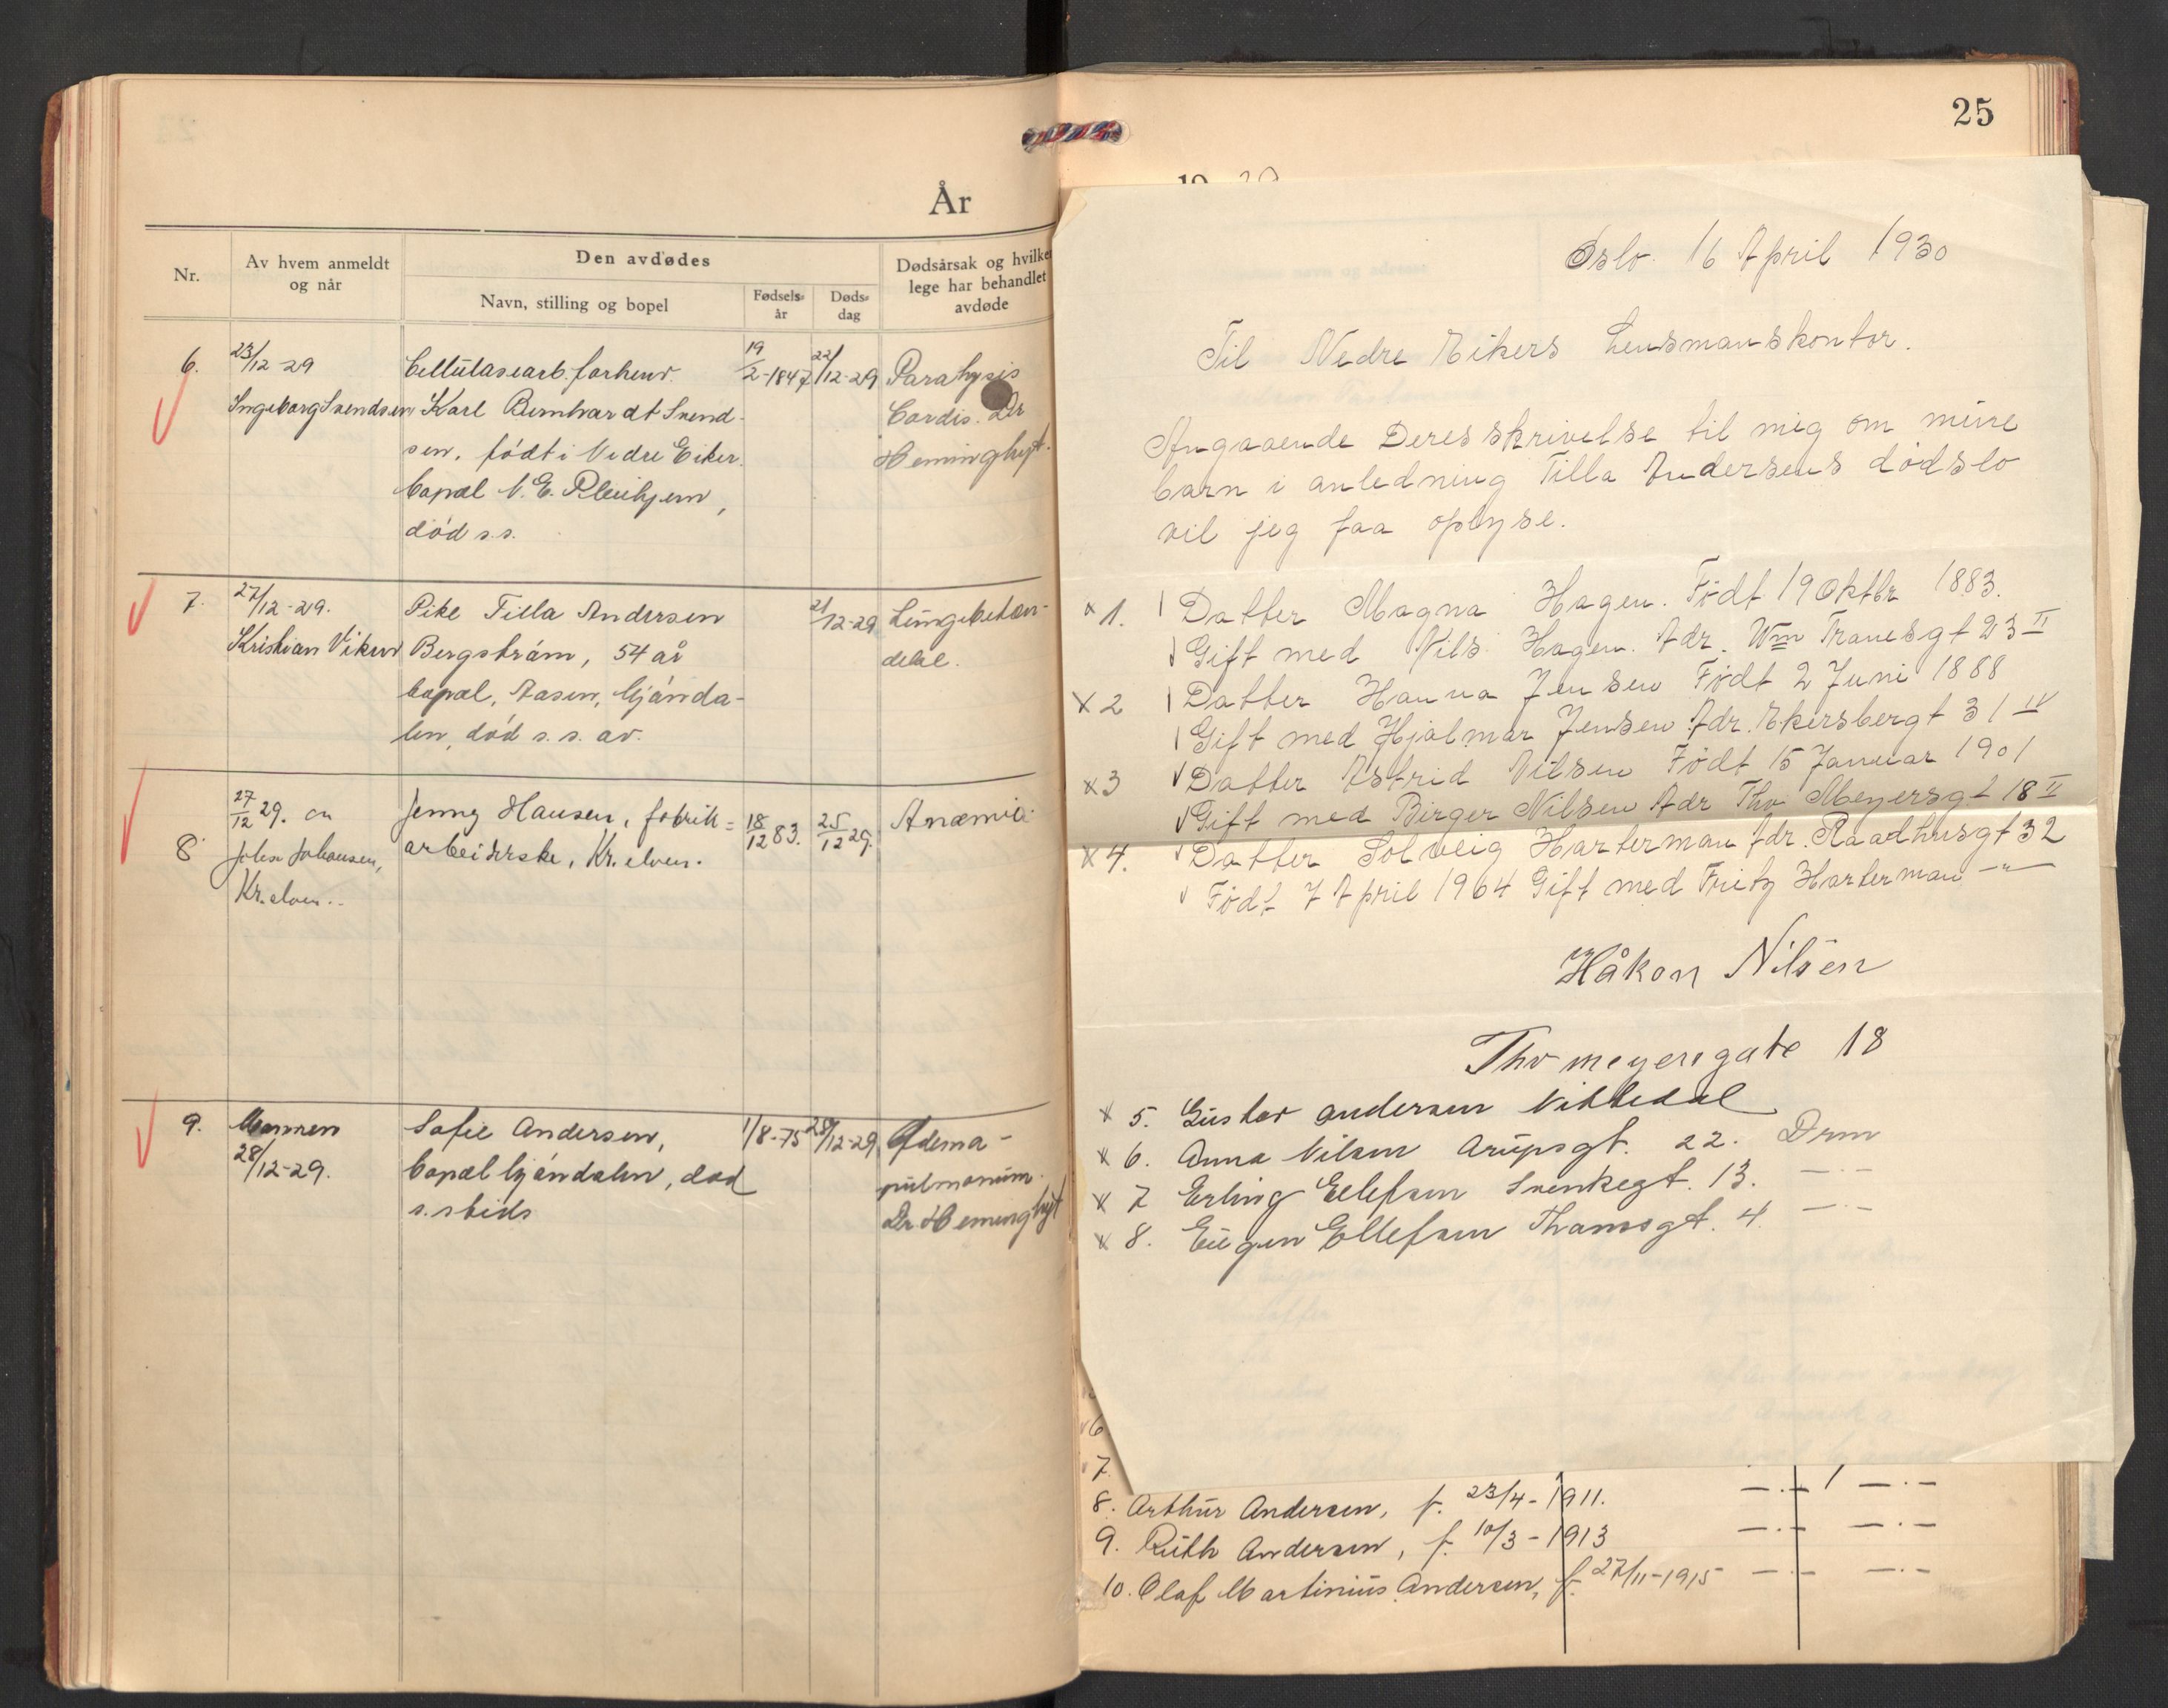 År
Nr.
Av hvem anmeldt
og når
Den avdødes
Navn, stilling og bopel
Fødsels-
år
Døds-
dag
Dødsårsak og hvilken
lege har behandlet
avdøde
6.
23/12-29
Ingeborg Svendsen
Cellulosearb. forhenv.
Karl Bernhardt Svend-
sen, født i Nedre Eiker.
bopæl N. E. Pleiehjem,
død s.s.
19/2-1847
22/12-29
Paralysis
Cordis. Dr
Heminghyt.
7.
27/12-29.
Kristian Viken
Pike Tilla Andersen
Bergstrøm, 54 år
bopæl, Aasen, Mjønda-
len, død s.s. av.
21/12-29
Lungebeten-
delse.
8.
27/12 29. av
Johan Johansen,
Kr.elven.
Jenny Hansen, fabrik=
arbeiderske, Kr. elven.
18/12 83.
25/12 29.
Anæmia.
9.
Mannen
28/12-29.
Sofie Andersen,
bopæl Mjøndalen, død
s.steds
1/8-75
28/12-29
Ødema-
pulmonum.
Dr Heminghyt
25
19 29
Oslo 16 April 1930
Til Nedre Eikers Lensmanskontor.
Angaaende Deres skrivelse til mig om mine
barn i anledning Tilla Andersens dødsbo
vil jeg faa oplyse.
x 1. Datter Magna Hagen. Født 19 Oktbr 1883.
Gift med Nils Hagen. Adr. Wm Tranesgt 23 II
x 2 Datter Hanna Jensen Født 2 Juni 1888
Gift med Hjalmar Jensen Adr. Ekersbergt 31 IV
x 3 Datter Astrid Nilsen Født 15 Januar 1901
Gift med Birger Nilsen Adr Thv Meyersgt 18 II
x 4. Datter Solveig Harterman Adr. Raadhusgt 32
Født 7 April 1904 Gift med Fritz Harterman —"—
Håkon Nilsen
Thv meyersgate 18
x 5. Gustav Andersen Nittedal
x 6. Anna Nilsen Arupsgt. 22. Drm
x 7 Erling Ellefsen Svenkegt. 13. —.—
x 8. Eugen Ellefsen Thamsgt. 4. —.—
6
7.
8. Arthur Andersen, f. 23/4-1911. —.— —.—
9. Ruth Andersen, f. 10/3-1913 —.— —.—
10. Olaf Martinius Andersen, f. 27/11-1915 —.— —.—